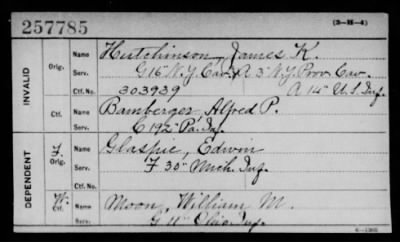 257785 (3-H-4)
INVALID
Orig. Name Hutchinson, James K.
Serv. G 16" N.Y. Cav. & 3" N.Y. Prov. Cav.
Ctf. No. 303939 A 14" U.S. Inf.
Ctf. Name Bamberger, Alfred P.
Serv. C 192 Pa. Inf.
DEPENDENT
F. Orig. Name Glaspie, Edwin
Serv. F 30" Mich. Inf.
Ctf. No.
W. Ctf. Name Moon, William M.
Serv. G 11" Ohio Inf.